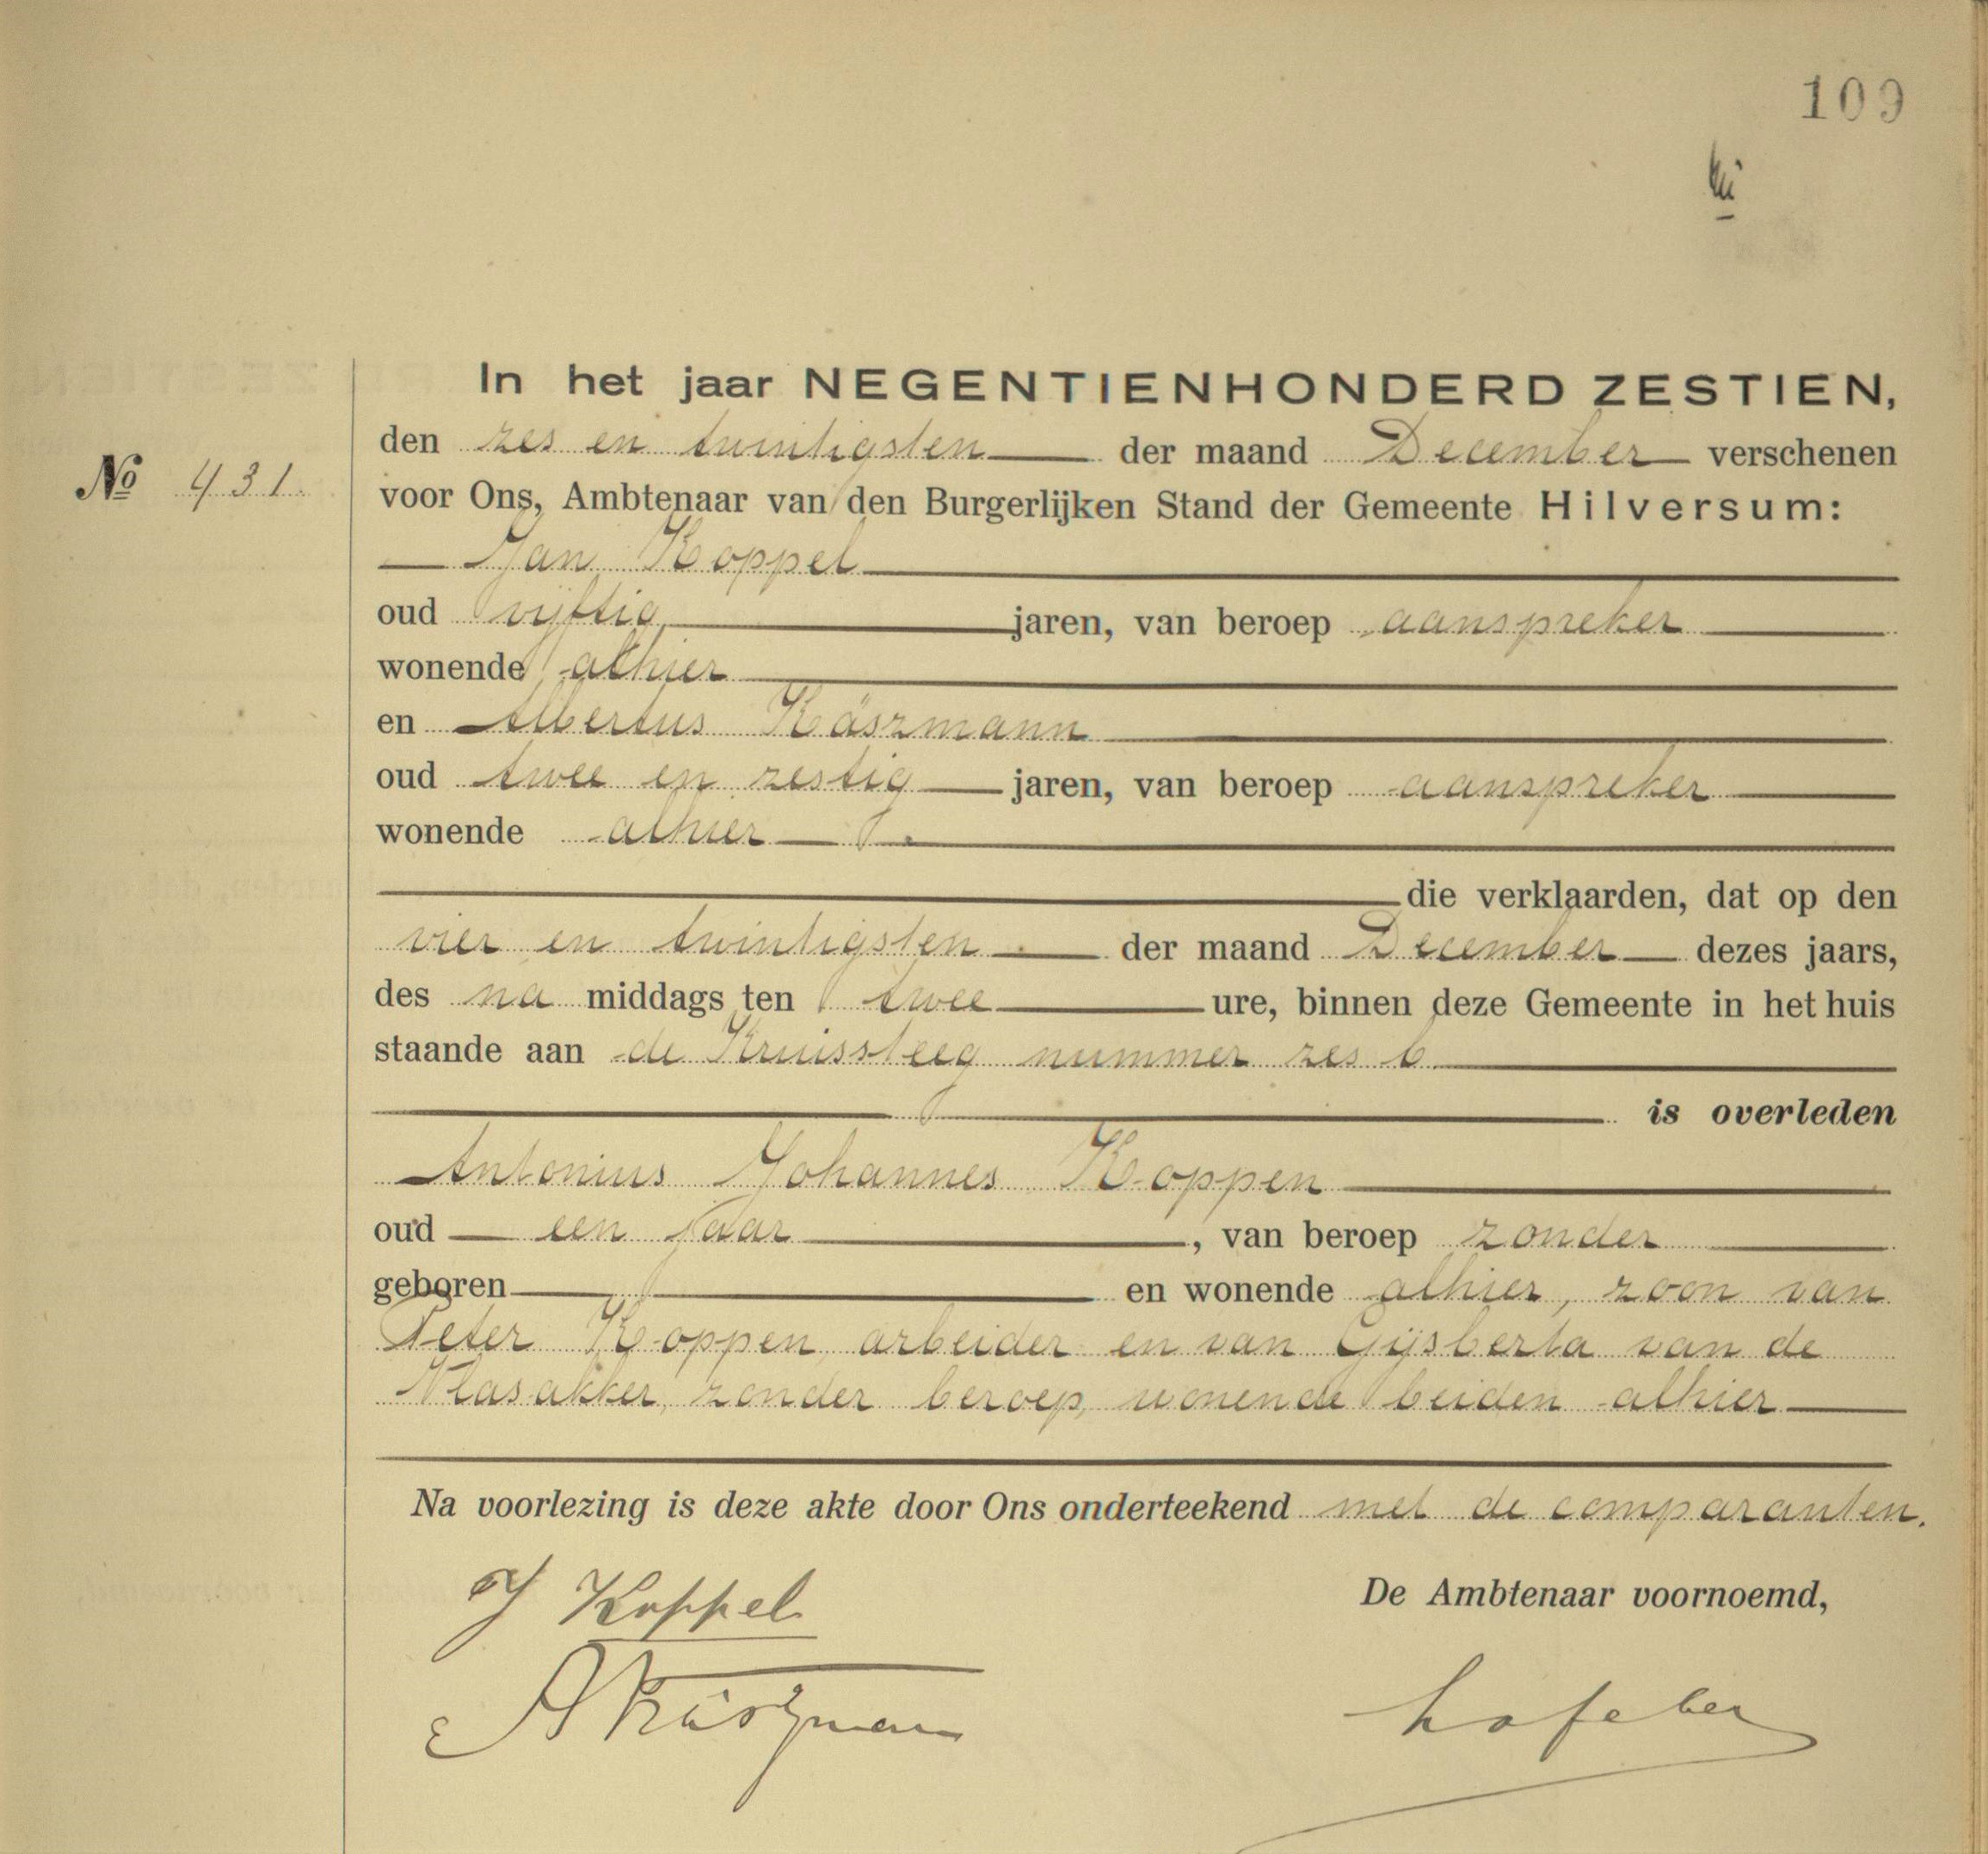 109
In het jaar NEGENTIENHONDERD ZESTIEN,
den zes en twintigsten der maand December verschenen
No 431.
voor Ons, Ambtenaar van den Burgerlijken Stand der Gemeente Hilversum:
Jan Koppel
oud vijftig jaren, van beroep aanspreker
wonende alhier
en Albertus Käszmann
oud twee en zestig jaren, van beroep aanspreker
wonende alhier
die verklaarden, dat op den
vier en twintigsten der maand December dezes jaars,
des na middags ten twee ure, binnen deze Gemeente in het huis
staande aan de Kruissteeg nummer zes b
is overleden
Antonius Johannes Koppen
oud een jaar, van beroep zonder
geboren en wonende alhier, zoon van
Peter Koppen, arbeider en van Gijsberta van de
Vlasakker, zonder beroep, wonende beiden alhier
Na voorlezing is deze akte door Ons onderteekend met de comparanten.
J Koppel
De Ambtenaar voornoemd,
A Käszman